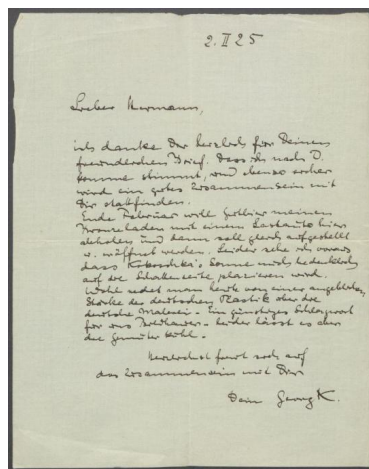 2. II 25
Lieber Hermann,
ich danke Dir herzlich für Deinen
freundlichen Brief. Dass ich nach D.
komme stimmt, und ebenso sicher
wird ein gutes Zusammensein mit
Dir stattfinden.
Ende Februar will meinen
Bronzeladen mit einem Lastauto hier
abholen und dann soll gleich aufgestellt
u. eröffnet werden. Leider sehe ich voraus
dass Kokoschka's Sonne mich bedenklich
auf die Schattenseite plazieren wird.
redet man heute von einer angeblichen
Stärke der deutschen Plastik über die
deutsche Malerei - Ein günstiges Schlagwort
für uns Bildhauer - leider lässt es aber
die Gemüter kühl. -
Herzlichst freut sich auf
das Zusammensein mit Dir
Dein Georg K.